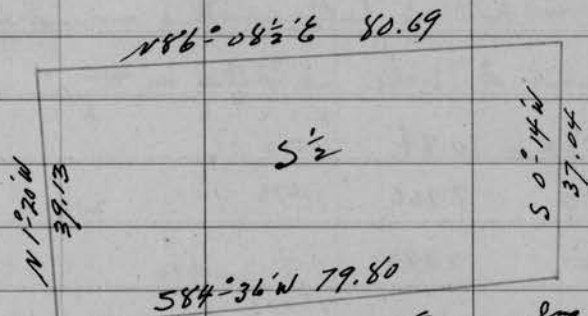 N86°-08½'E 80.69
S½
N1°-20'W
39.13
S0°-14'W
37.04
S84°-36'W 79.80